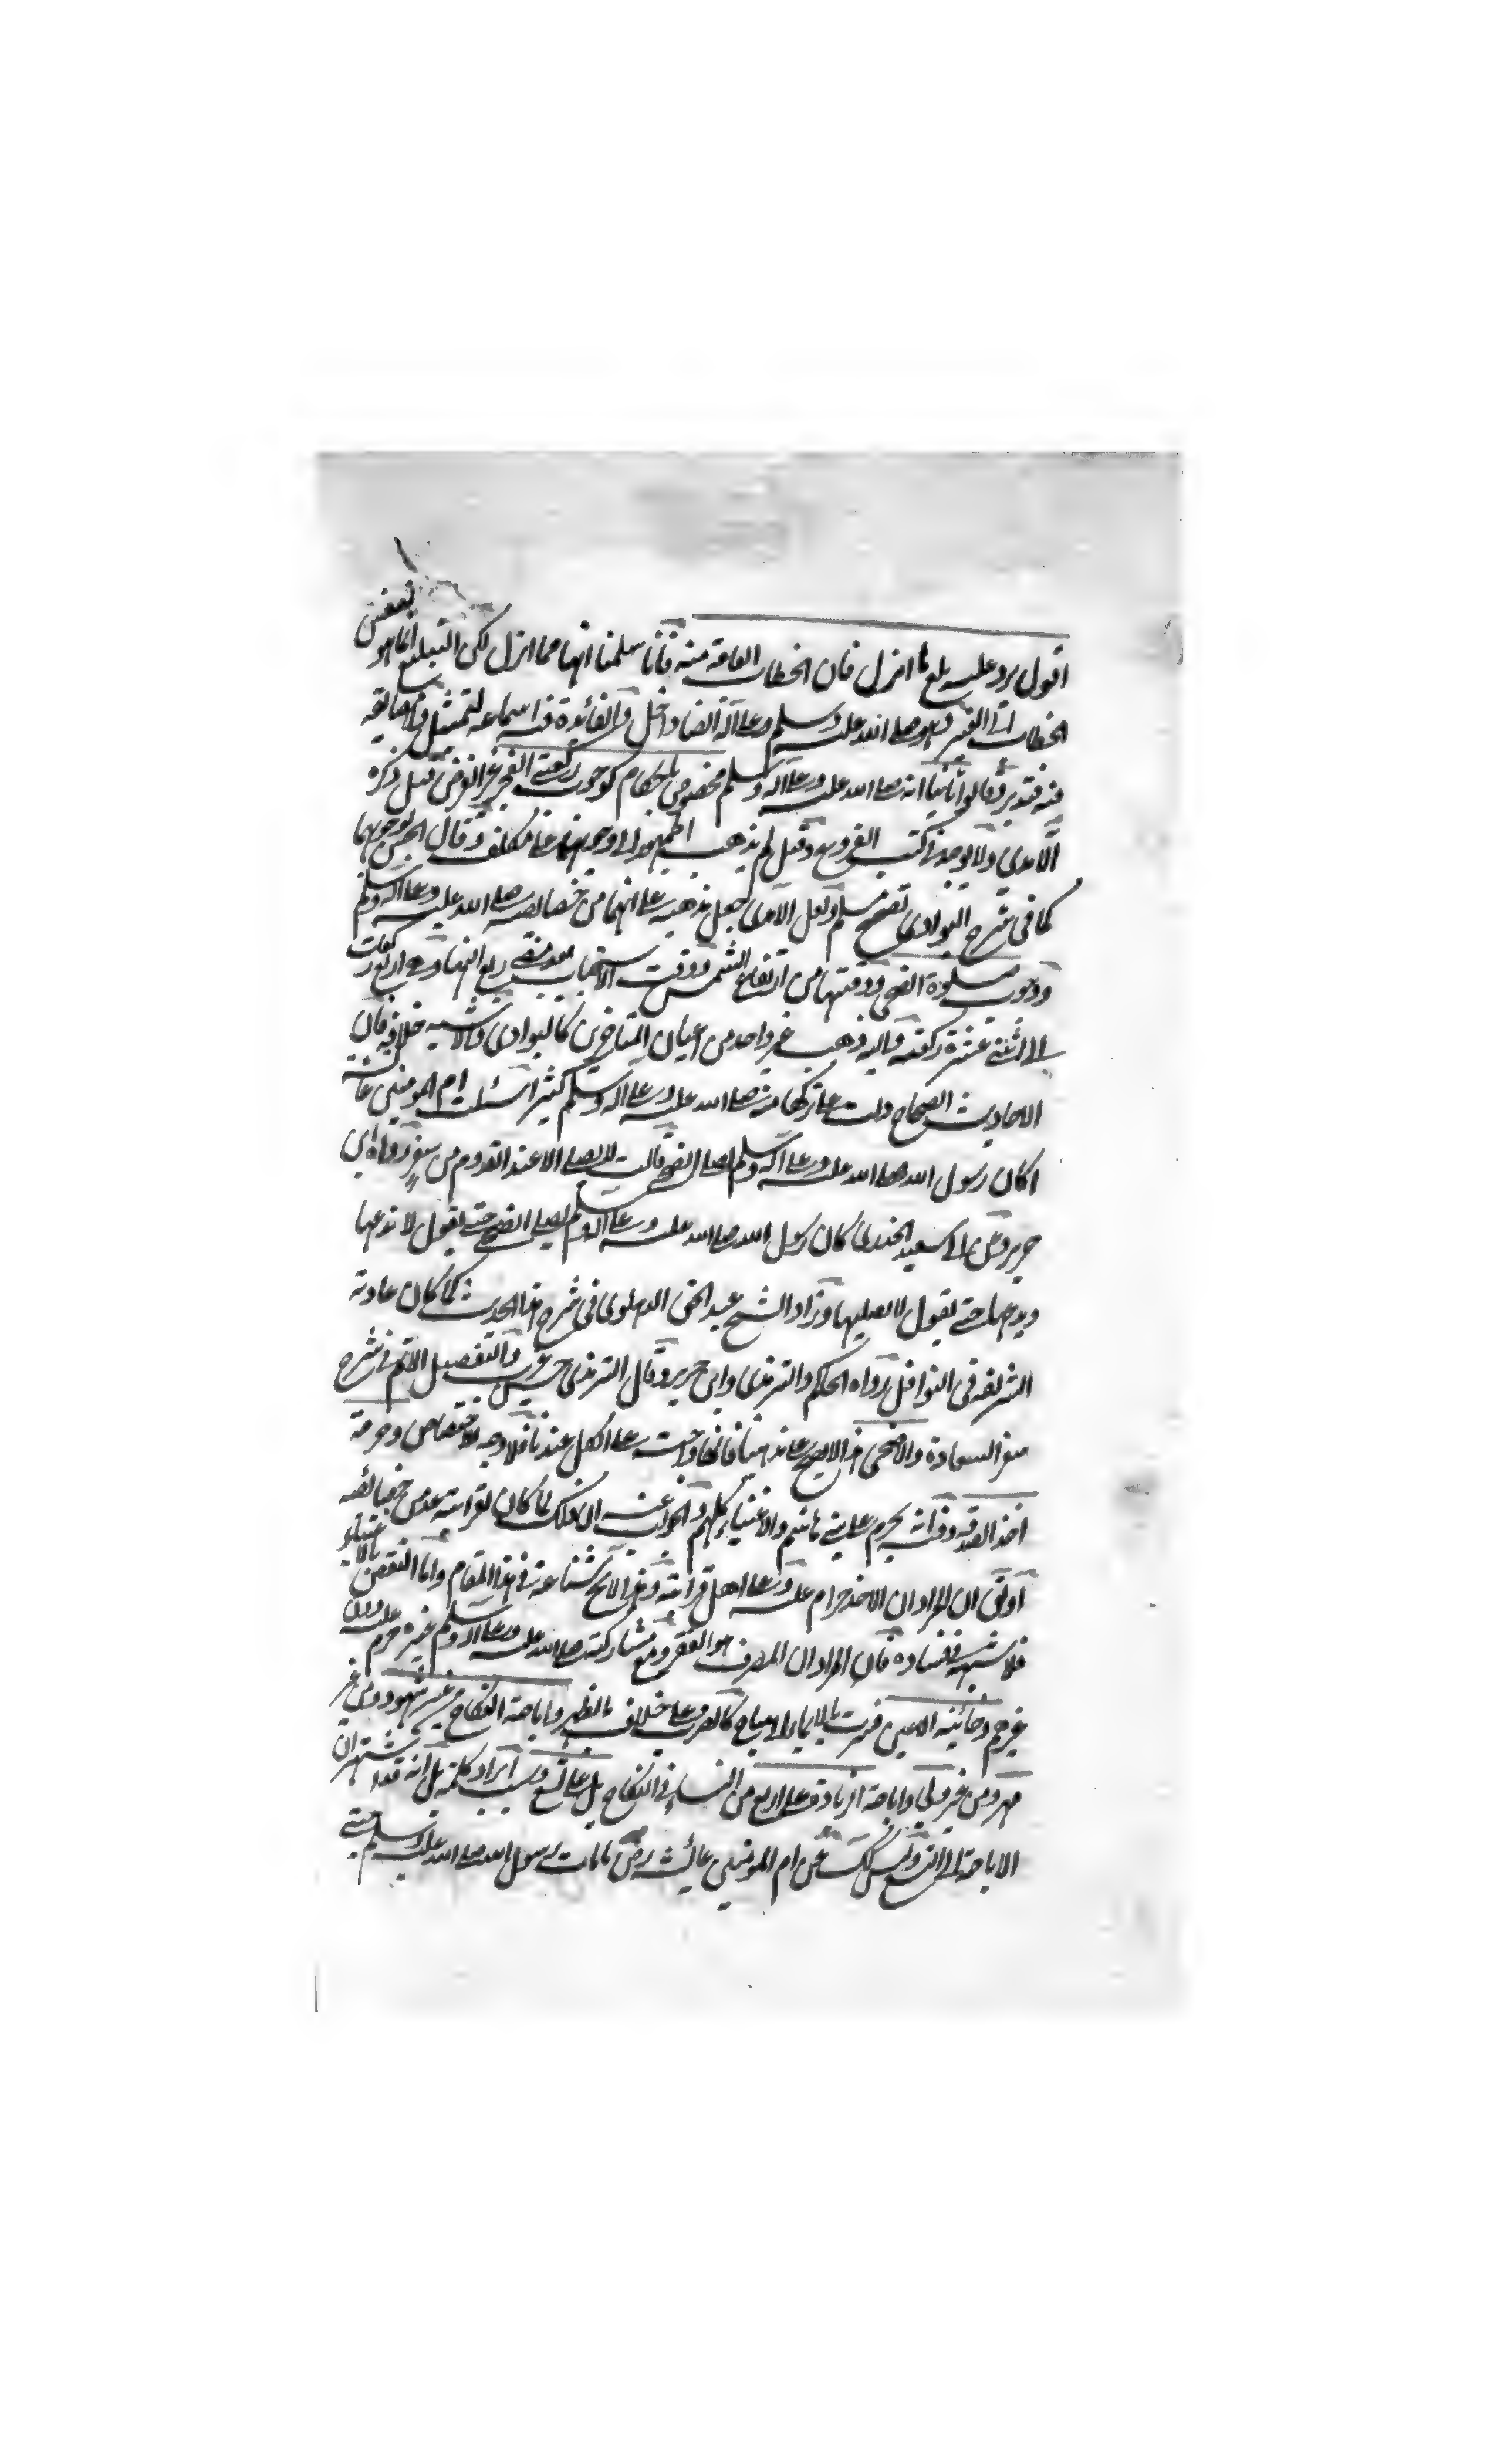 اقول يرد عليه بلغ ما انزل فان الخطابات العامة منه فانا سلمنا انها مما انزل لكن التبليغ انما هو بعض
الخطاب الى الغير وهو صلى الله عليه وسلم وعلى آله ايضا داخل والفائدة فيه اسماعه ليتمثل
فيه فتدبر وقالوا ثانيا انه صلى الله عليه وعلى اله وسلم مخصوص باحكام كوجوب ركعتي الفجر غير الفرض قيل ذكره
الآمدي ولا يوجد في كتب الفروع وقيل لم يذهب الجمهور الى وجوبهما على مكلف وقال الحسن بوجوبهما
كما في شرح النواوي لصحيح مسلم ولعل الآمدي جعل مذهبه على انهما من خصائصه صلى الله عليه وعلى اله وسلم
ووجوب صلوة الضحى ووقتها من ارتفاع الشمس ووقت الاستحباب بعد مضي ربع النهار وهي اربع ركعات
الى اثنتي عشرة ركعة واليه ذهب غير واحد من اعيان المتاخرين كالنواوي والاشبه خلافه فان
الاحاديث الصحاح دلت على تركها منه صلى الله عليه وعلى اله وسلم كثيرا سئلت ام المومنين عائشة
اكان رسول الله صلى الله عليه وعلى اله وسلم يصلى الضحى قالت لا يصلى الا عند القدوم من سفر رواه ابن
جرير وعن ابى سعيد الخدرى كان رسول الله صلى الله عليه وعلى اله وسلم يصلى الضحى حتى يقول لا يدعها
ويدعها حتى يقول لا يصليها وزاد الشيخ عبد الحق الدهلوى فى شرح هذا الحديث كما كان عادته
الشريفة فى النوافل رواه الحاكم والترمذى وابن جرير وقال الترمذى حسن غريب والتفصيل الاتم في شرح
سفر السعادة والاضحى اذ الاصح على مذهبنا فانها واجبة على الكل عندنا فلا وجه للاختصاص وحرمة
اخذ الصدقة وفيه انه يحرم على بني هاشم والاغنياء كلهم والجواب عنه ان ذلك لما كان لقرابته عد من خصائصه
او نقول ان المراد ان الاخذ حرام عليه وعلى اهل قرابته وفي هذا المقام واما النقض بالاغنياء
فلا شبهة في فساده فان المراد ان المصرف هو الفقر ومع مشاركته صلى الله عليه وعلى اله وسلم غيره حرم عليه دون
غيره وخائنة الاعين فسرت بالايماء الى مباح كالضرب على خلاف ما يظهر واباحة النكاح من غير شهود ومن غير
مهر ومن غير ولي واباحة الزيادة على اربع من النساء في النكاح بل على تسع ايراد كلمة بل انه قد اشتهر ان
الاباحة الى التسع وليس كذلك عن ام المومنين عائشة رض ما مات رسول الله صلى الله عليه وسلم حتى